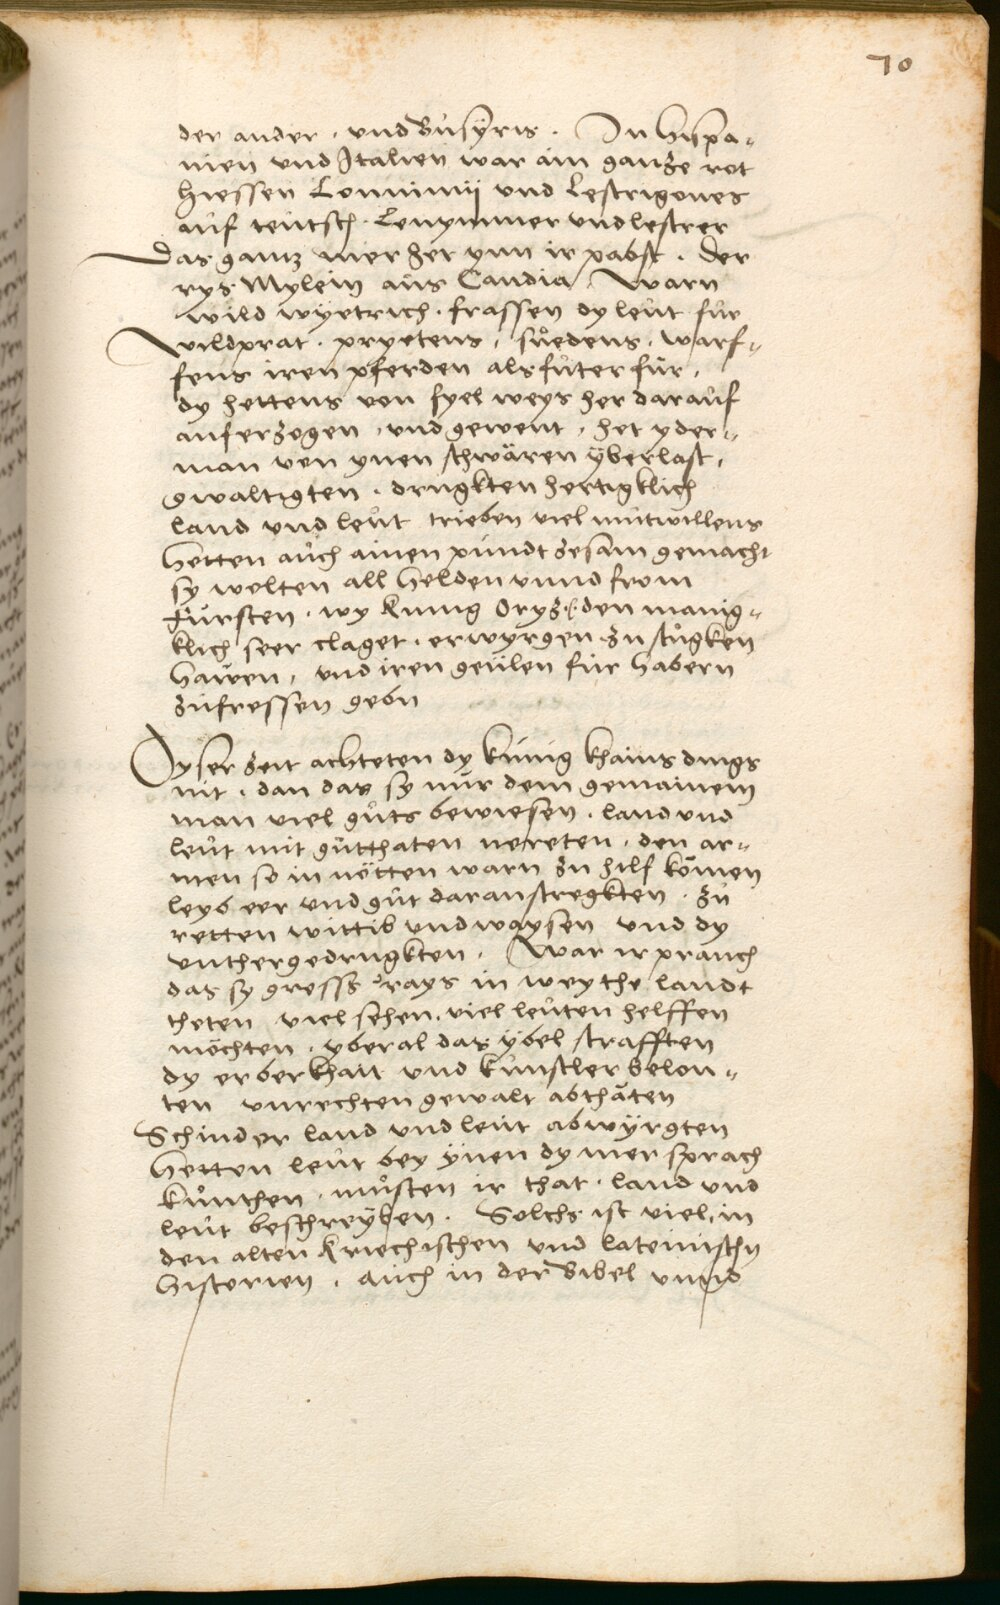 70
der ander, und Busÿris. In Hispa-
nien und Italien war ain gantze rot
Hiessen Lonnimij und Lestrigones
auf teutsch. Lenymmer und lestrer
Das gantz mer het ynn ir pabst. Der
rys Mylein aus Candia. Warn
wild wÿetrich. frassen dy leut für
Wildprat. pryetens, suedens, warf-
fens iren pferden als fuoter für,
dy hettens von fyel weys her darauf
auferzogen, und gewent, het yder-
man von ynen schwären ÿberlast,
gwaltigten. drugkten hertigklich
land und leut trieben viel mutwillens
Hetten auch ainen pundt zesam gemacht
sy wolten all Helden unnd from
Fursten. wy kunig Oryz den manig-
klich seer claget. erwyrgen. zu stugken
Hawen, und iren geulen für Habern
zufressen gebn
Dyser zeit achteten dy kunig khains dings
nit. dan das sy nur dem gemainem
man viel guts bewiesen. land und
leut mit gutthaten nereten. den ar-
men so in nötten warn zu hilf komen
leyb eer und gut daranstregkten. zu
retten wittib und waysen und dy
unthergedrugkten. War ir prauch
das sy gross rays in weythe landt
theten viel sehen. viel leuten helffen
möchten. yberal das ÿbel strafften
dy erberkhait und kunstler belon-
ten unrechten gewalt abthäten
Schinder land und leut abwÿrgten
Hetten leut bey ÿnen dy mer sprach
kunthen. muosten ir that. land und
leut beschreÿben. Solchs ist viel in
den alten kriechischen und lateinischn
Historien. auch in der Bibel unnd